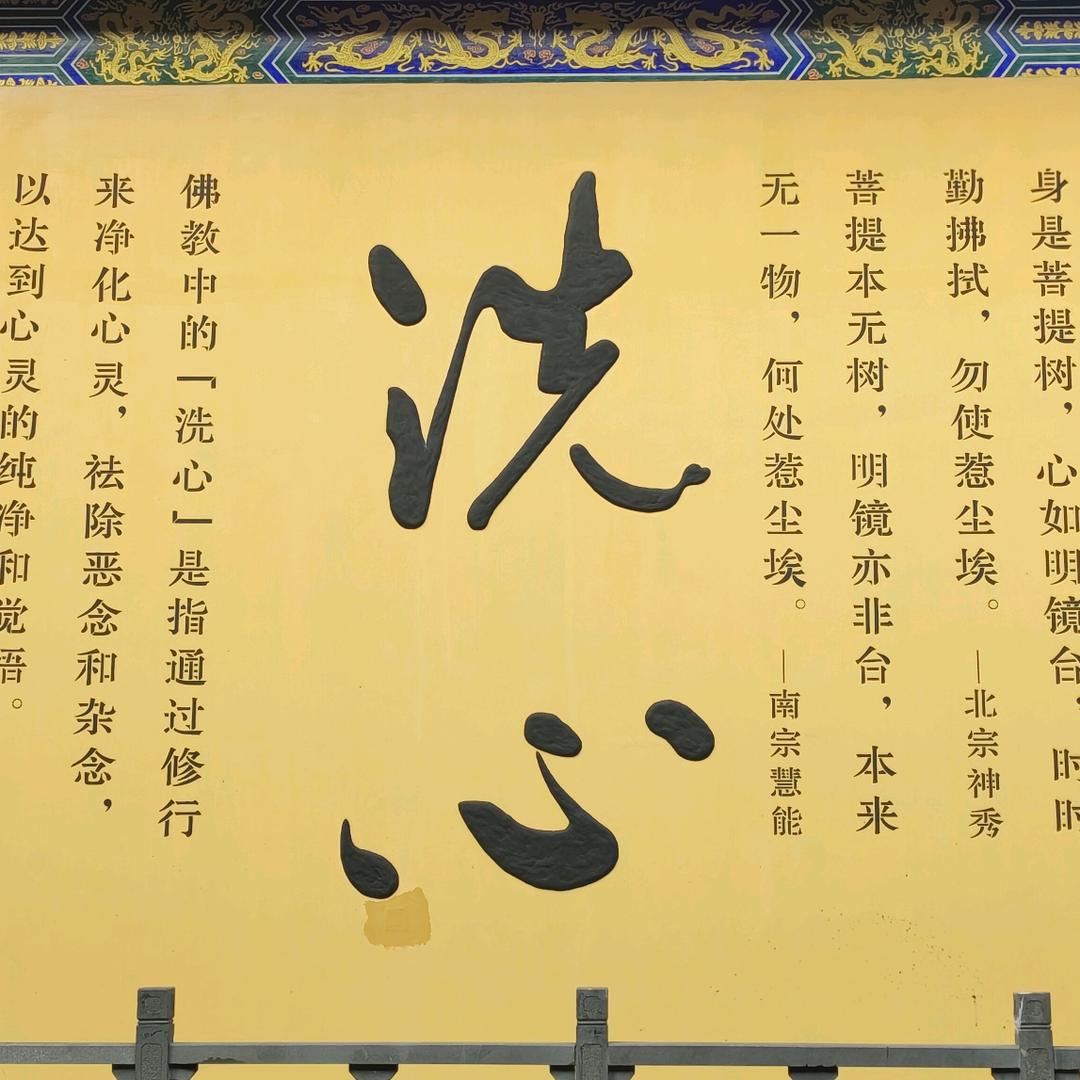 身是菩提树，心如明镜台，时时
勤拂拭，勿使惹尘埃。—北宗神秀
菩提本无树，明镜亦非台，本来
无一物，何处惹尘埃。—南宗慧能
洗心
佛教中的「洗心」是指通过修行
来净化心灵，祛除恶念和杂念，
以达到心灵的纯净和觉悟。